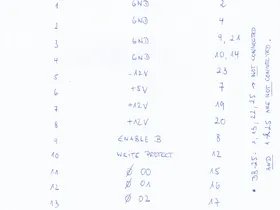 1 GND 2
2 GND 4
3 GND 9, 21
4 GND 10, 14
5 -12V 23
6 +5V 7
7 +12V 19
8 +12V 20
9 ENABLE B 8
10 WRITE PROTECT 12
11 Ø 00 15
12 Ø 01 16
13 Ø 02 17
• DB-25: 1, 13, 22, 25 → NOT CONNECTED
AND ARE NOT CONNECTED.